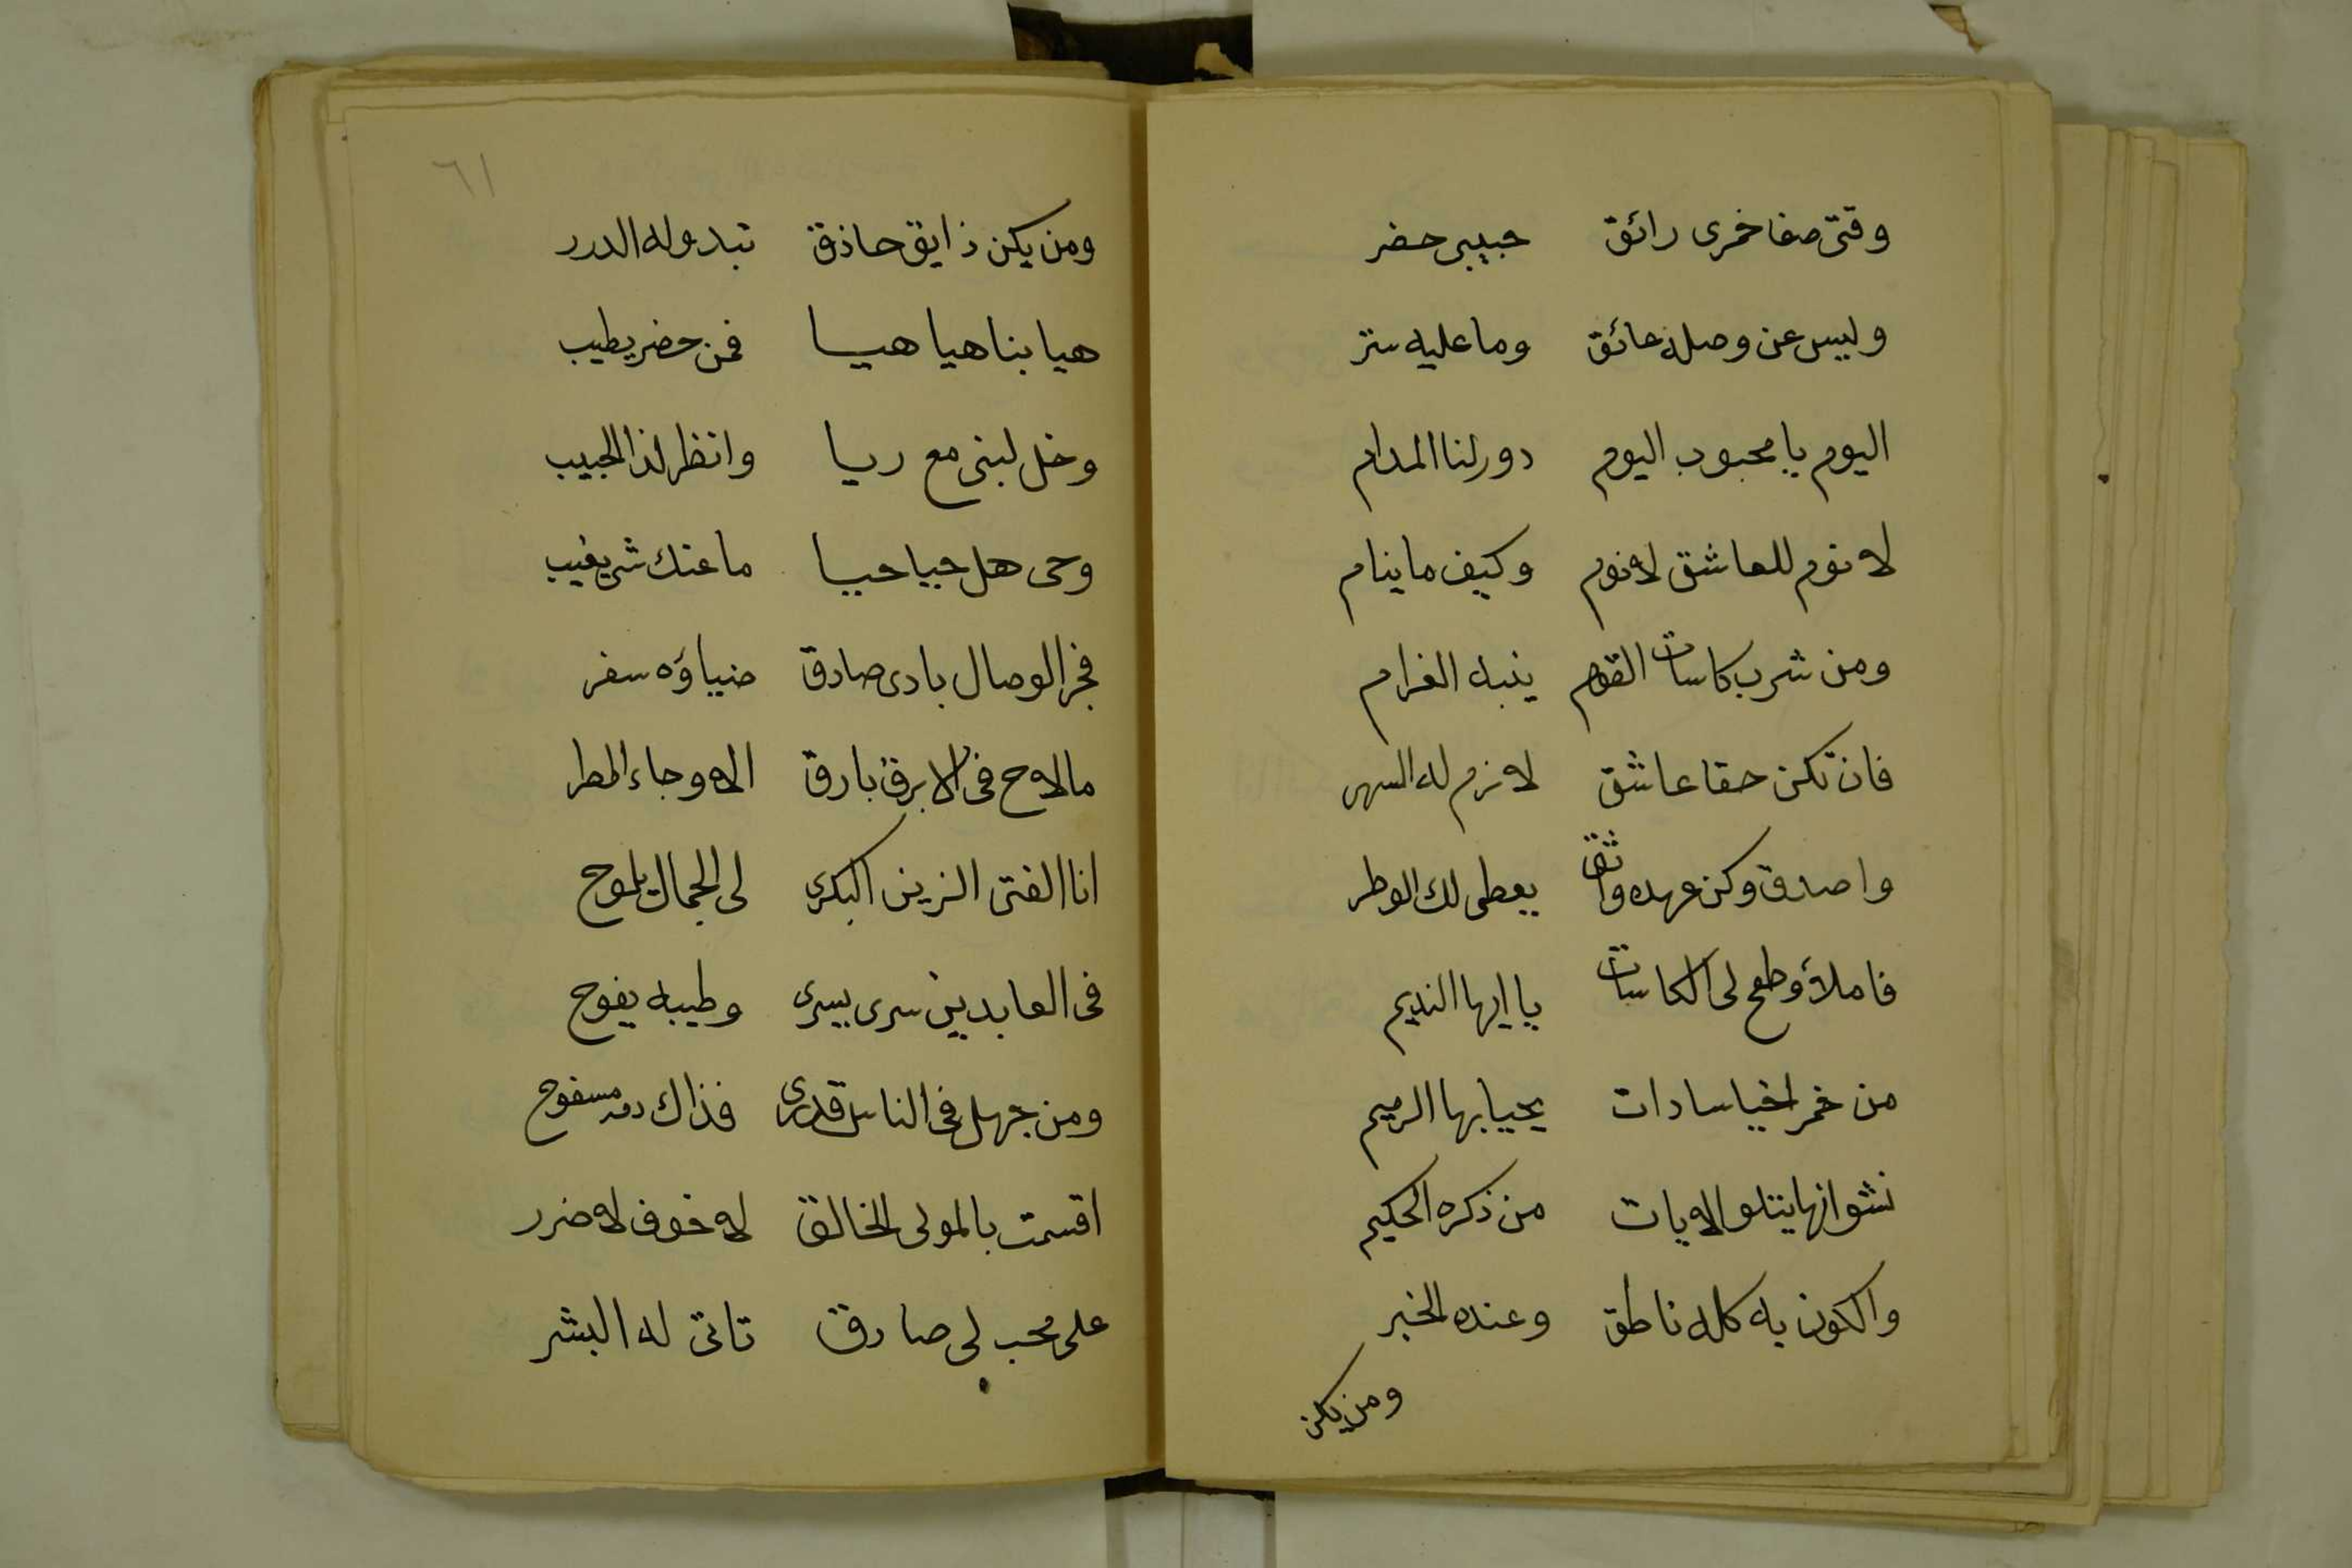 وقتى صفا خمرى رائق حبيبى حضر
وليس عن وصله عائق وما عليه ستر
اليوم يا محبوب اليوم دور لنا المدام
لا نوم للعاشق لا نوم وكيف ما ينام
ومن شرب كاسات القوم ينبه الغرام
فان تكن حقا عاشق لازم له السهر
واصدق وكن عهده واثق يعطى لك الوطر
فاملأ وطفح لى الكاسات يا ايها النديم
من خمر اخيا سادات يحيا بها الرميم
نشوانها يتلو الايات من ذكره الحكيم
والكون به كله ناطق وعنده الخبر
ومن يكن
٦١
ومن يكن ذايق حاذق تبدو له الدرر
هيا بنا هيا هيا فمن حضر يطيب
وخل لبنى مع ريا وانظر لذا الحبيب
وحى هل حيا حيا ما عنك شى يغيب
فجر الوصال بادى صادق ضياؤه سفر
مالاح فى الابرق بارق الا وجاء المطر
انا الفتى الزين البكرى لى الجمال يلوح
فى العابدين سرى يسرى وطيبه يفوح
ومن جهل فى الناس قدرى فذاك دمه مسفوح
اقسمت بالمولى الخالق لا خوف لا ضرر
على محب لى صادق تاتى له البشر